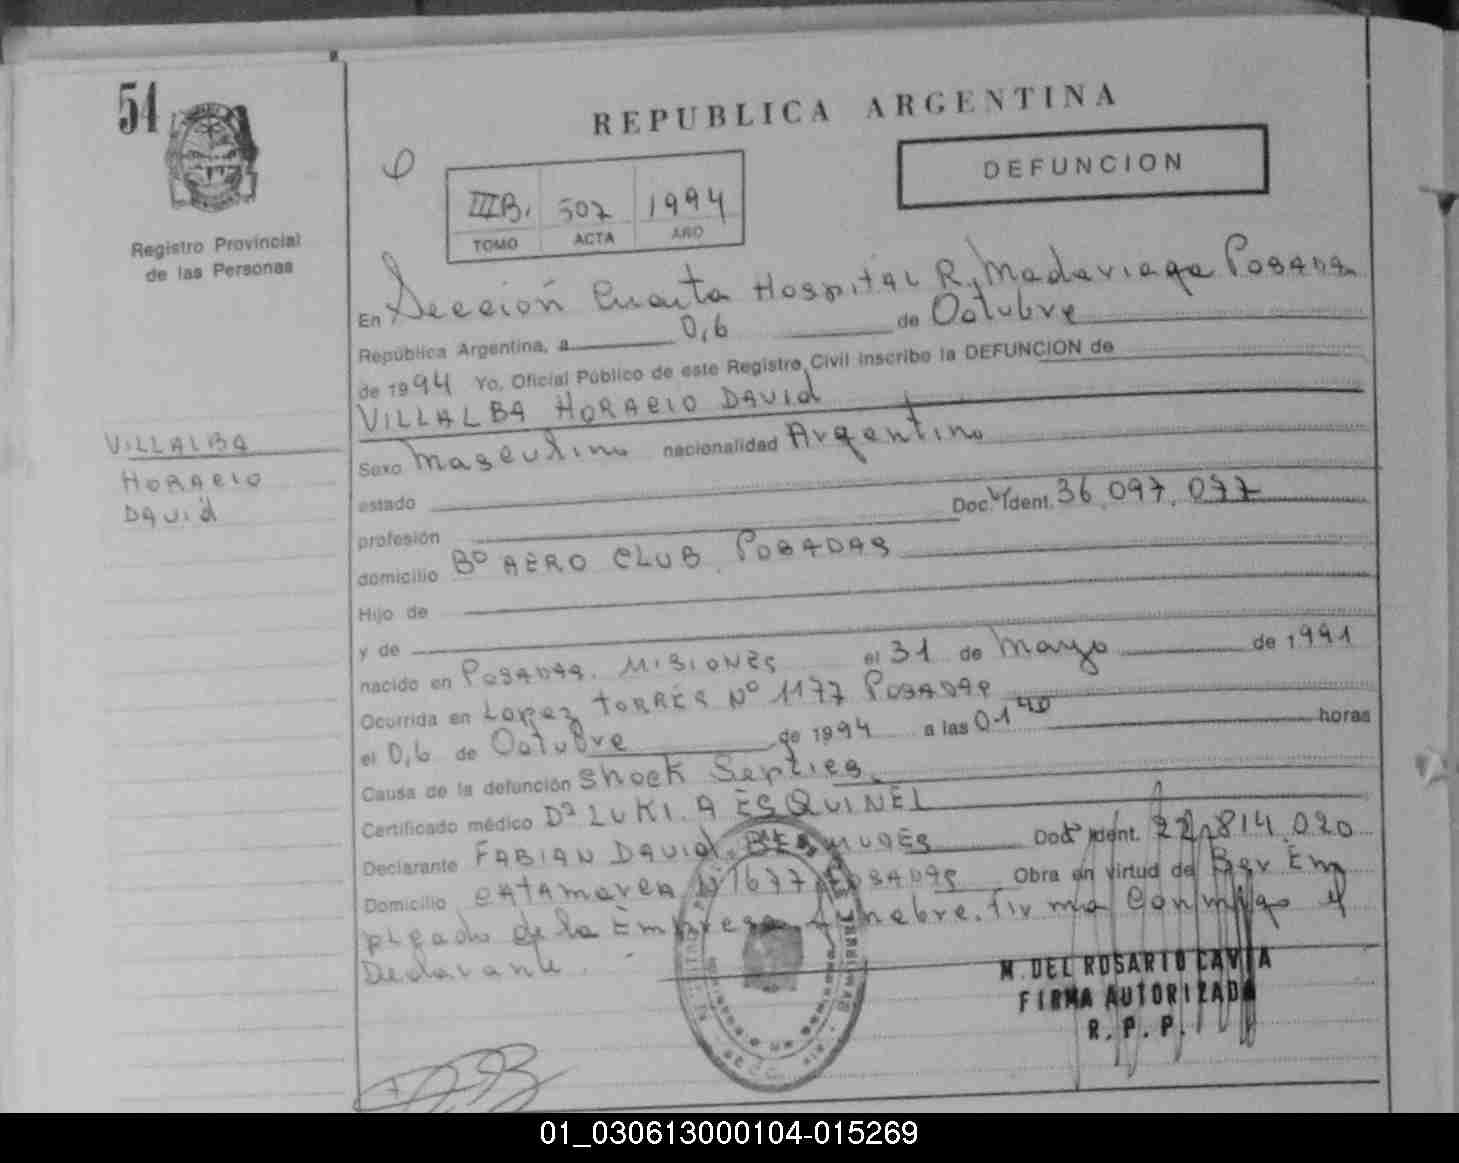 54
REPUBLICA ARGENTINA
DEFUNCION
IIIB. 507 1994
TOMO ACTA AÑO
Registro Provincial
de las Personas
En Sección Cuarta Hospital R. Madariaga Posadas
República Argentina, a 0,6 de Octubre
de 1994 Yo, Oficial Público de este Registro Civil inscribo la DEFUNCION de
VILLALBA HORACIO DAVID
VILLALBA
HORACIO
DAVID
Sexo Masculino nacionalidad Argentino
estado
profesión Doc. Ident. 36.097.077
domicilio Bº AERO CLUB. POSADAS
Hijo de
y de
nacido en POSADAS. MISIONES el 31 de Mayo de 1991
Ocurrida en Lopez TORRES Nº 1177 POSADAS
el 0,6 de Octubre de 1994 a las 01 40 horas
Causa de la defunción Shock Septico
Certificado médico LUKI. A ESQUINEL
Declarante FABIAN DAVID BERMUDES Doc. Ident. 22.814.020
Domicilio CATAMARCA Nº 1677 POSADAS Obra en virtud de Ser Em
pleado de la Empresa Funebre. firma Conmigo el
Declarante.
M. DEL ROSARIO CAVIA
FIRMA AUTORIZADA
R. P. P.
01_030613000104-015269